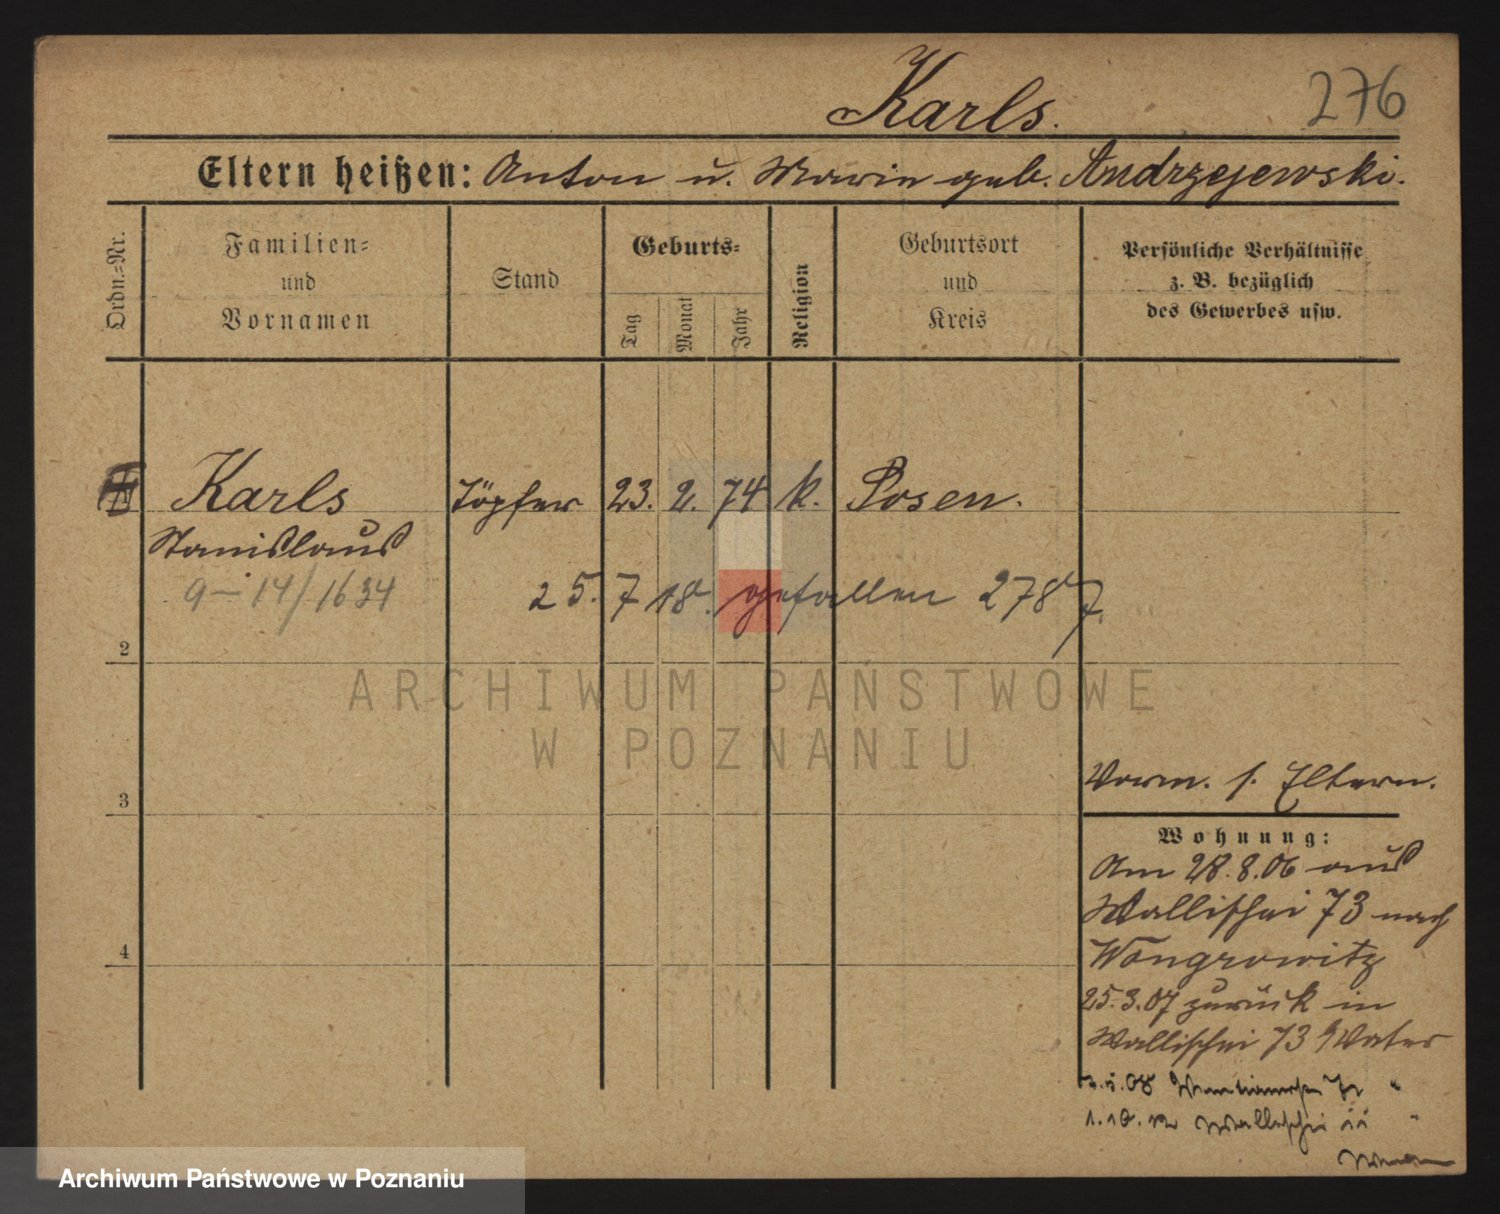 Karls.
276
Eltern heißen: Anton u. Marie geb. Andrzejewski.
Ordn.-Nr.
Familien-
und
Vornamen
Stand
Geburts-
Tag
Monat
Jahr
Religion
Geburtsort
und
Kreis
Persönliche Verhältnisse
z. B. bezüglich
des Gewerbes usw.
Karls Töpfer 23. 2. 74 k. Posen.
Stanislaus
9-14/1634
25. 7 18. gefallen 2787.
2
ARCHIWUM PAŃSTWOWE
W POZNANIU
3
Vorm. s. Eltern.
Wohnung:
Am 28.8.06 aus
Wallischei 73 nach
Wongrowitz
4
25.3.07 zurück in
Wallischei 73 Vater
08
1.10.12 Wallischei
Archiwum Państwowe w Poznaniu